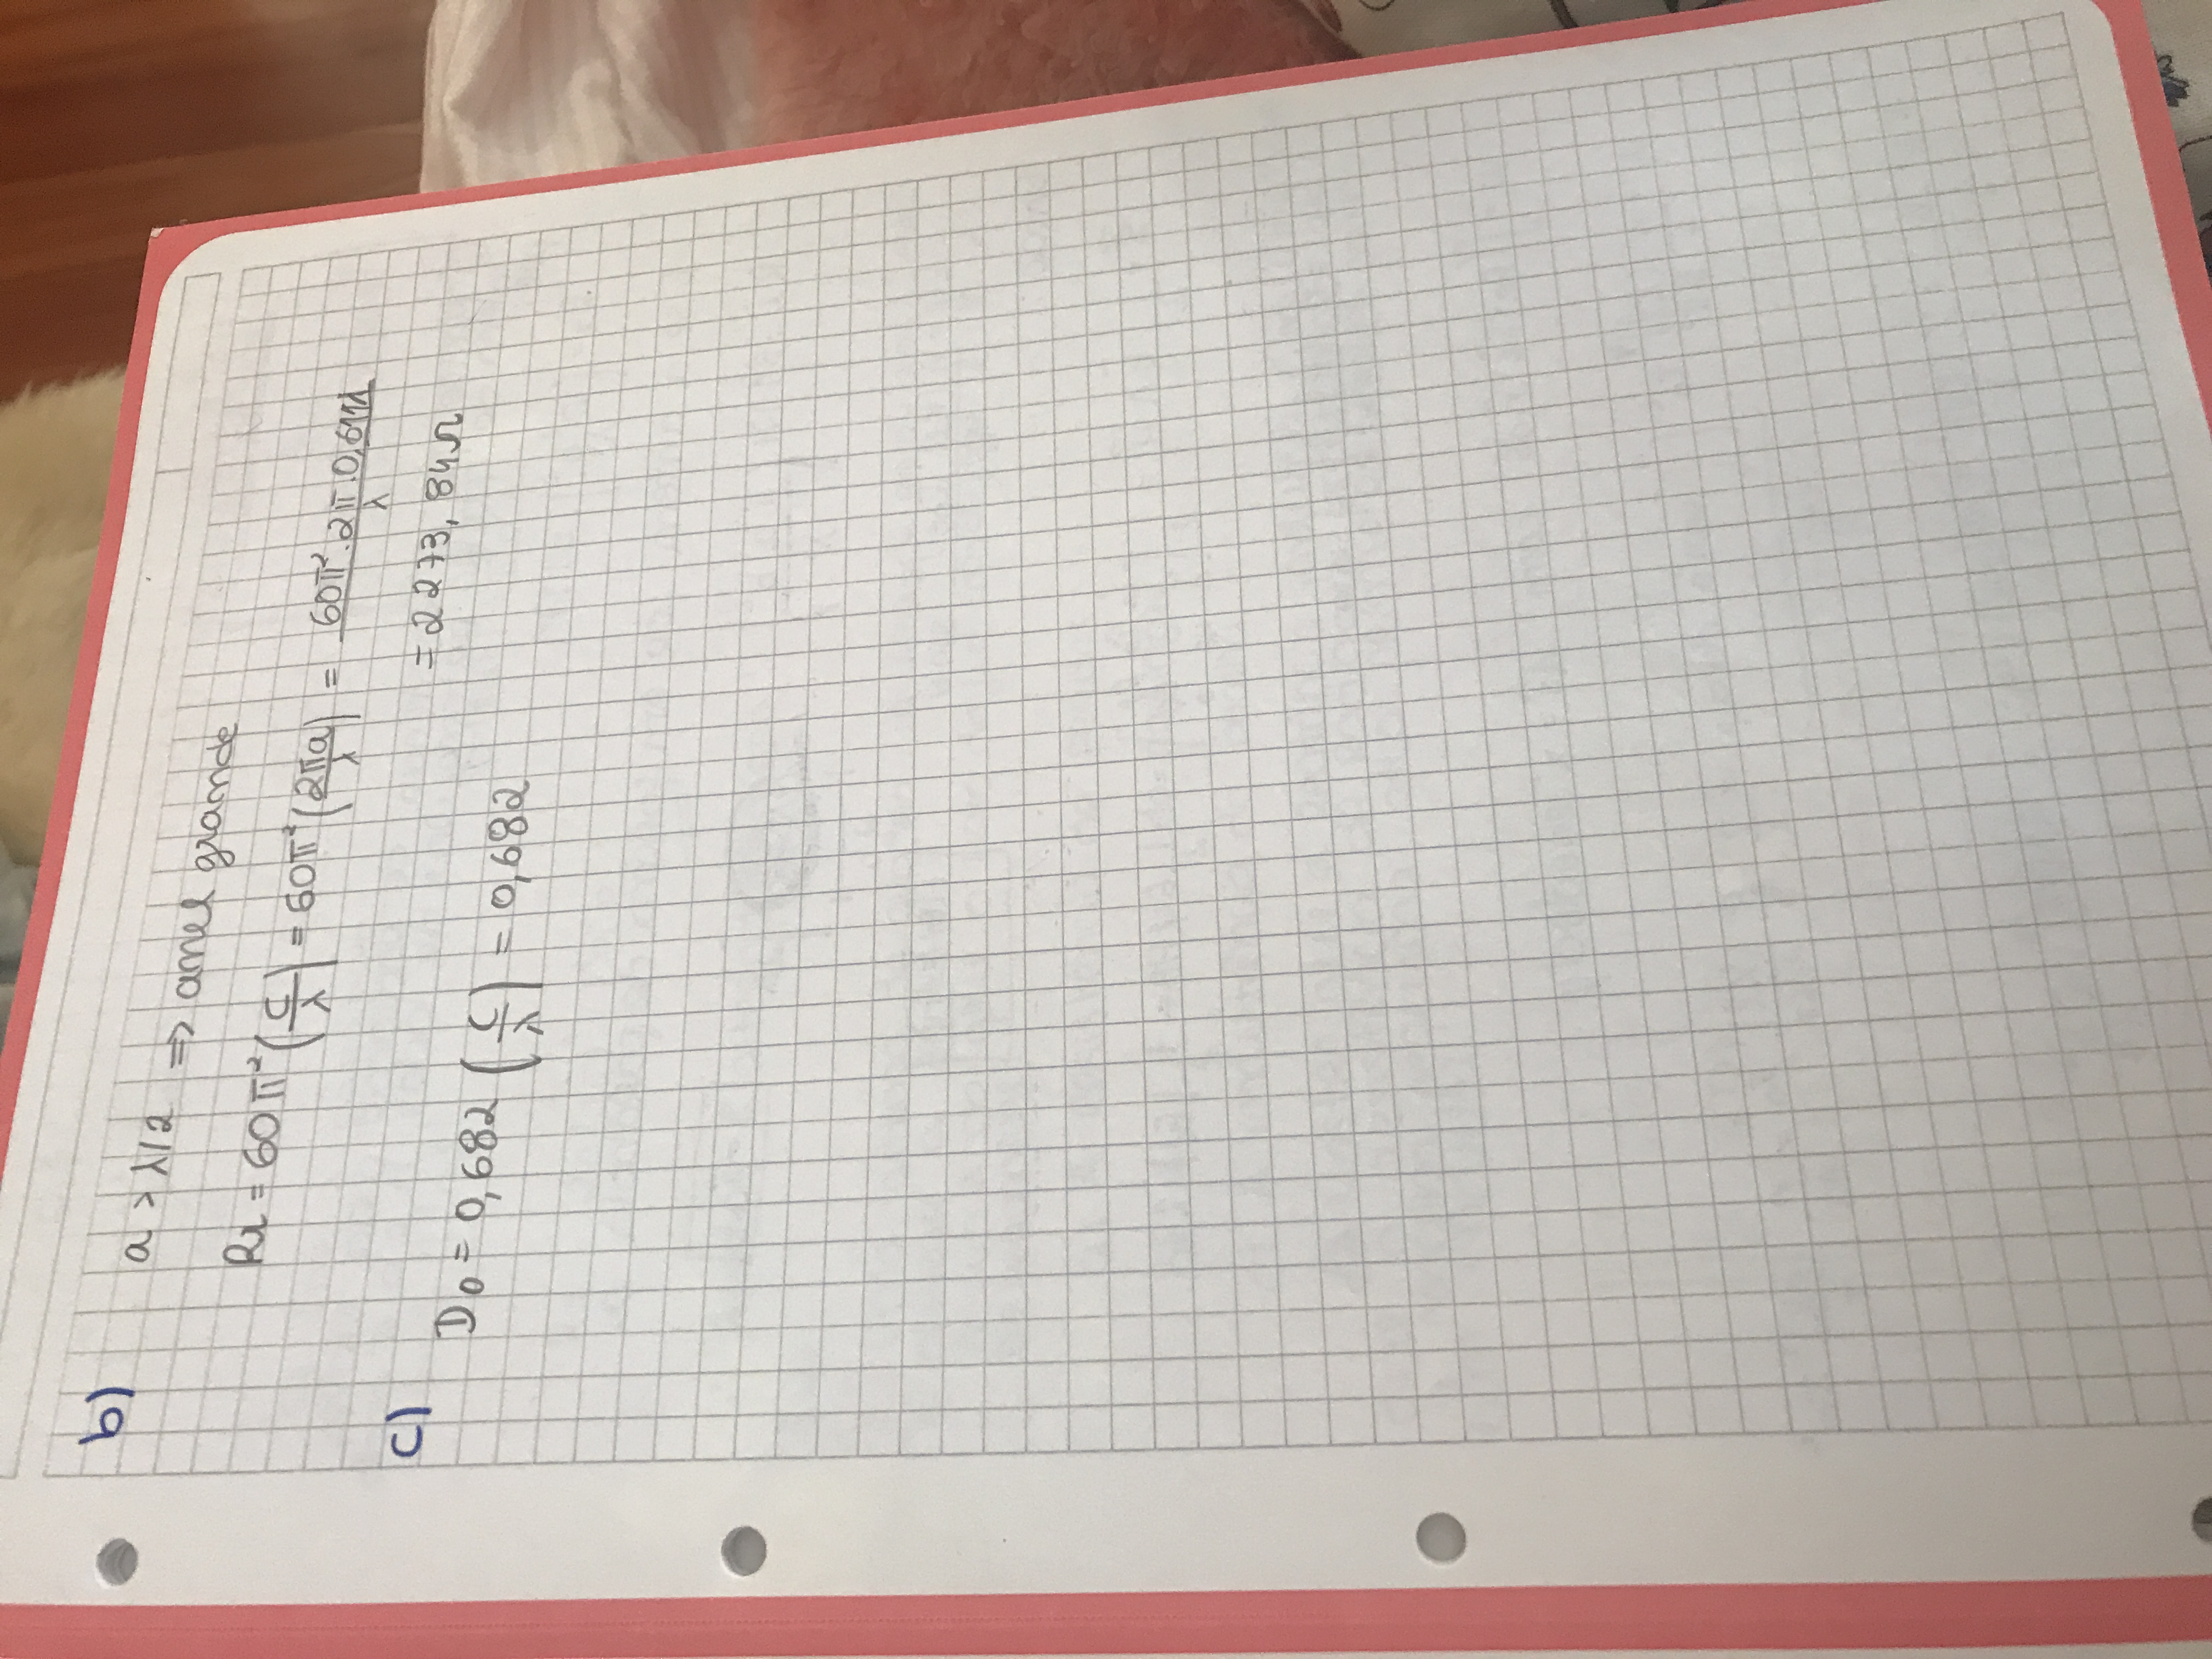 b)
a > λ/2 => anel grande
Rr = 60π² (C/λ) = 60π² (2πa/λ) = 60π².2π.0,611λ/λ
= 2273,84Ω
c)
D0 = 0,682 (C/λ) = 0,682